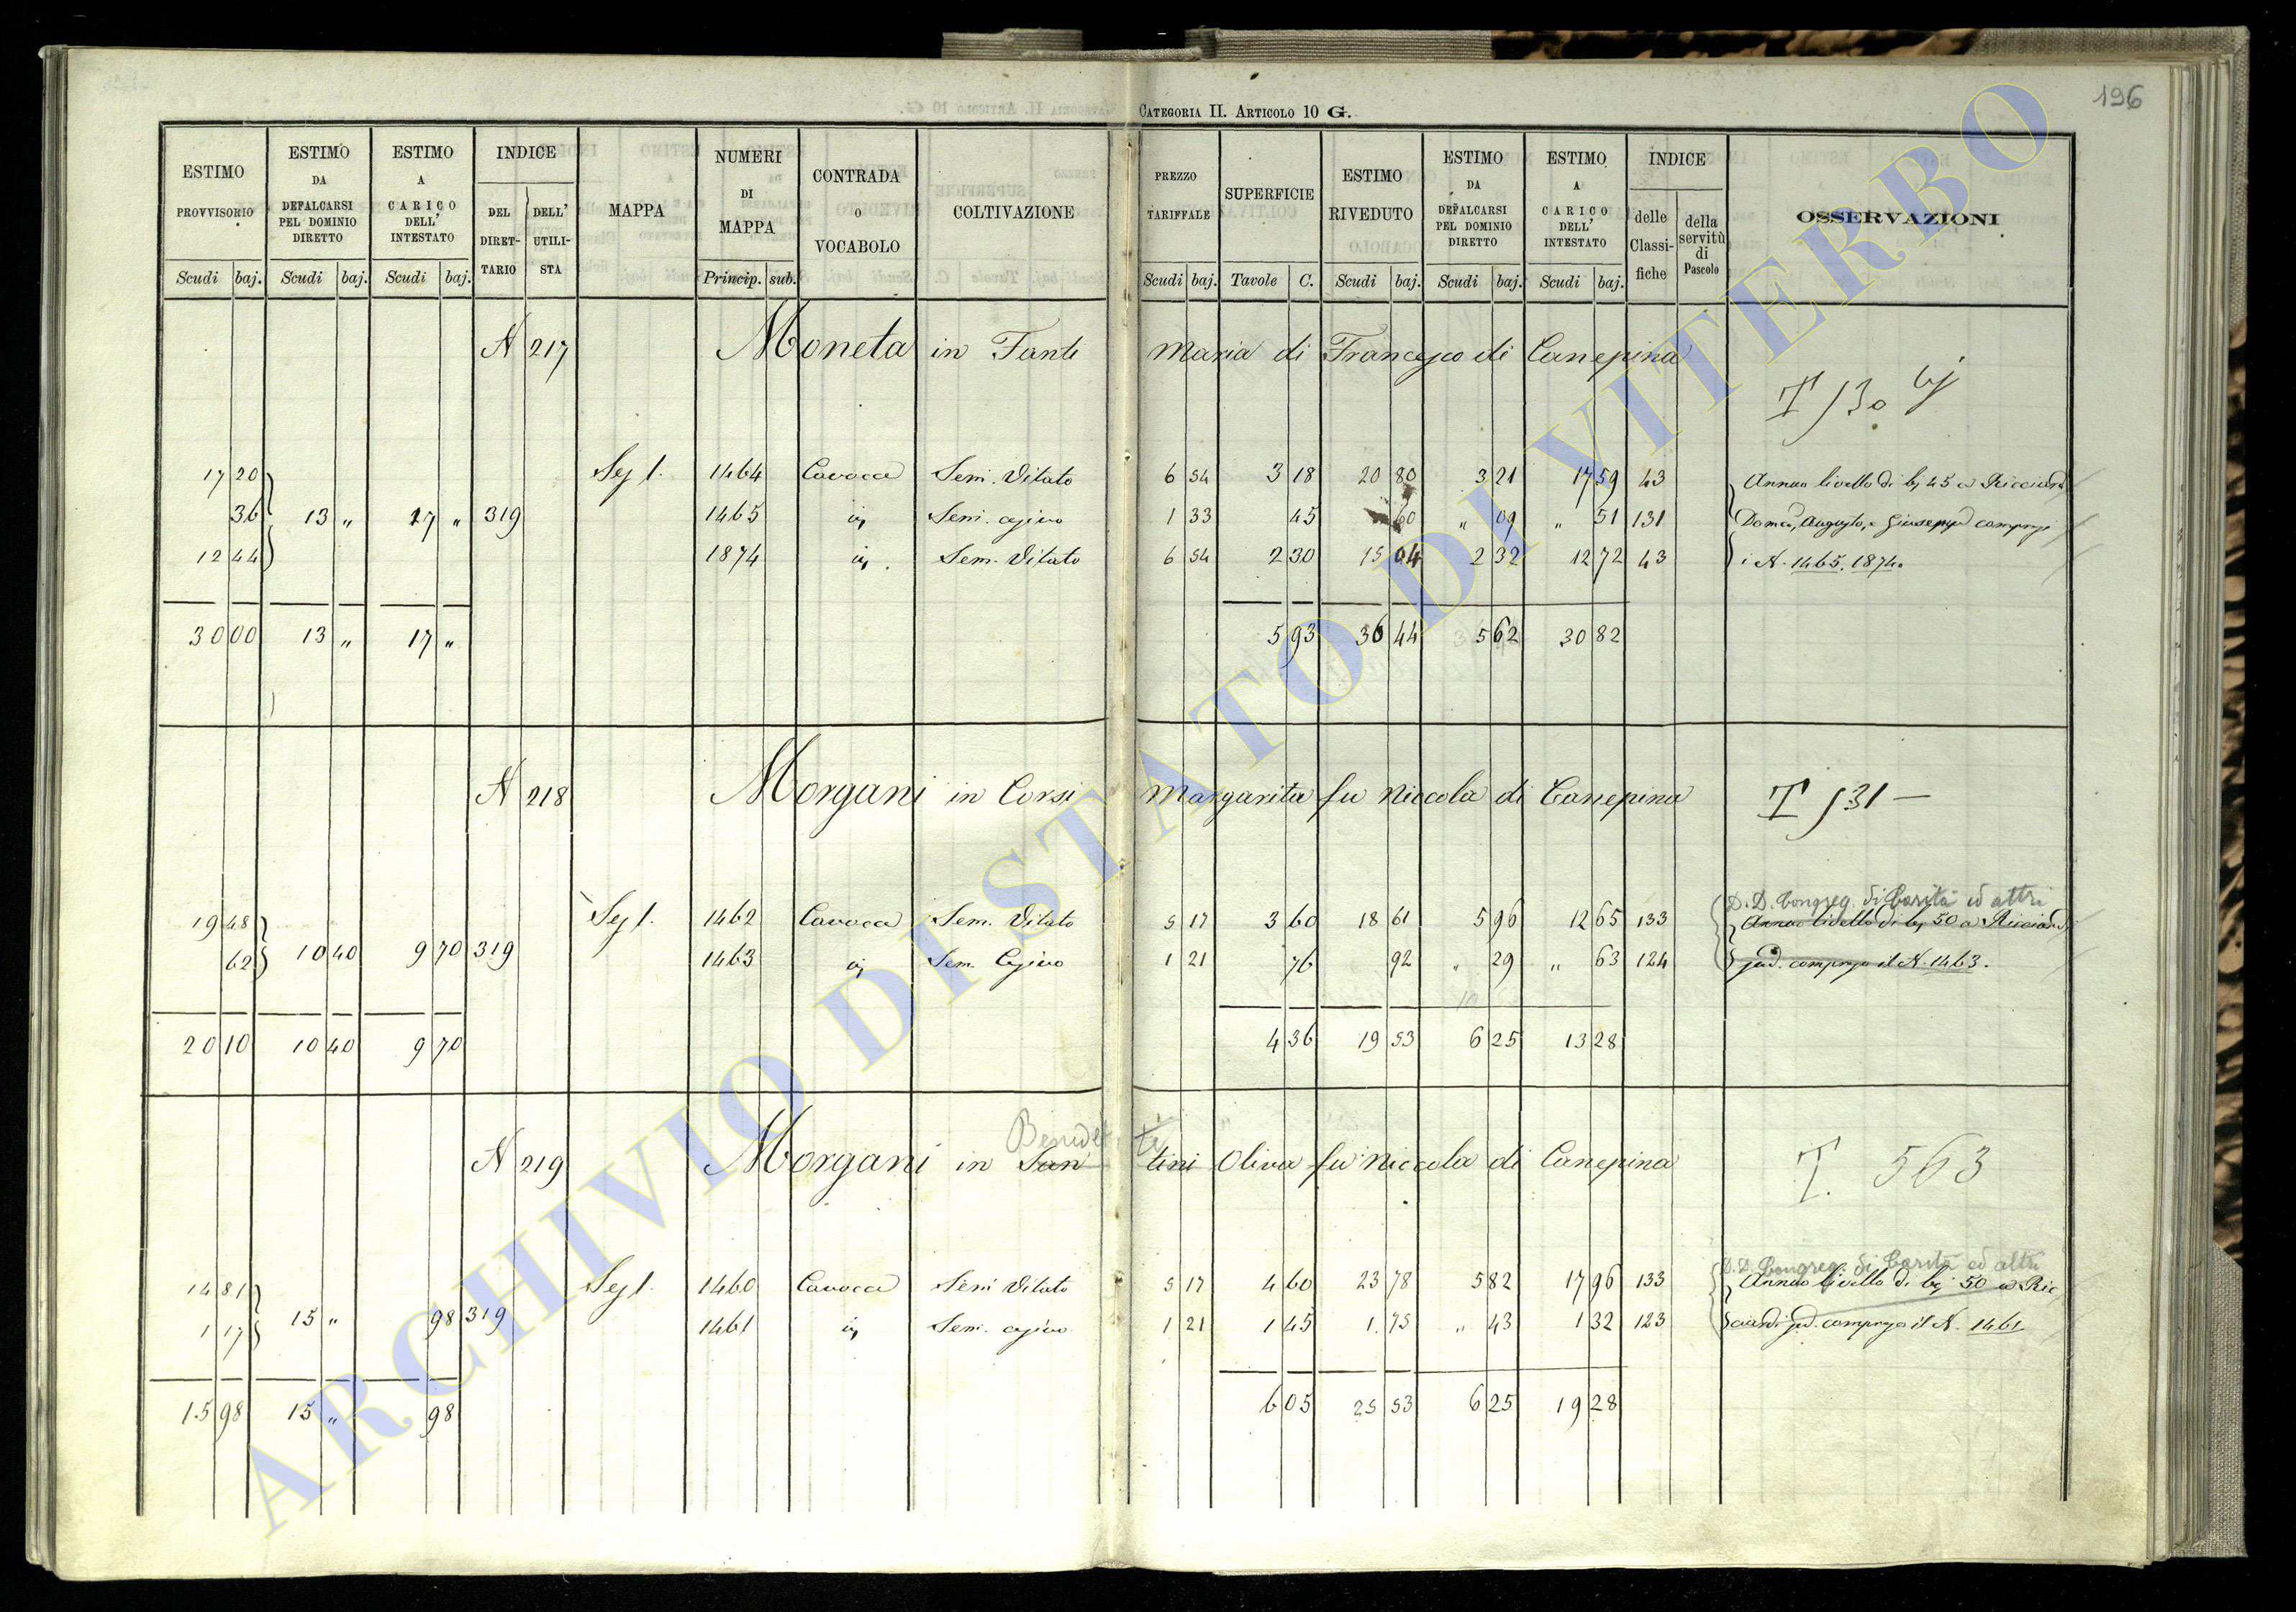 196
CATEGORIA II. ARTICOLO 10 G.
ESTIMO PROVVISORIO
ESTIMO DA DEFALCARSI PEL DOMINIO DIRETTO
ESTIMO A CARICO DELL' INTESTATO
INDICE
DEL DIRETTARIO
DELL' UTILISTA
MAPPA
NUMERI DI MAPPA
CONTRADA o VOCABOLO
COLTIVAZIONE
PREZZO TARIFFALE
SUPERFICIE
ESTIMO RIVEDUTO
ESTIMO DA DEFALCARSI PEL DOMINIO DIRETTO
ESTIMO A CARICO DELL' INTESTATO
INDICE
delle Classifiche
della servitù di Pascolo
OSSERVAZIONI
Scudi baj. Scudi baj. Scudi baj. Princip. sub. Scudi baj. Tavole C. Scudi baj. Scudi baj. Scudi baj.
N 217 Moneta in Fanti Maria di Francesco di Canepina
T 130
17 20 1464 Cavocca Sem. Vitato 6 54 3 18 20 80 3 21 17 59 43 Annuo livello di bj 45 a Ricciardi
36 13 " 17 " 319 1465 Sem. 1 33 45 60 " 09 " 51 131 Augusto, e Giuseppe compreso
12 44 1874 Sem. Vitato 6 54 2 30 15 04 2 32 12 72 43 i N. 1465. 1874.
30 00 13 " 17 " 5 93 36 44 5 62 30 82
N 218 Morgani in Corsi Margarita fu Niccola di Canepina T 131 —
D. D. Congreg. di Carità ed altri
19 48 1462 Cavocca Sem. Vitato 5 17 3 60 18 61 5 96 12 65 133 Annuo livello di bj 50 a Ricciardi
62 10 40 9 70 319 1463 Sem. 1 21 76 92 " 29 " 63 124 compreso il N. 1463.
20 10 10 40 9 70 4 36 19 53 6 25 13 28
Benedetti
N 219 Morgani in Santini Oliva fu Niccola di Canepina T. 563
D. D. Congreg. di Carità ed altri
14 81 1460 Cavocca Sem Vitato 5 17 4 60 23 78 5 82 17 96 133 Annuo livello di bj 50 a Ric
1 17 15 " 98 319 1461 Sem. 1 21 1 45 1. 75 " 43 1 32 123 ciardi compreso il N. 1461
15 98 15 " 98 6 05 25 53 6 25 19 28
ARCHIVIO DI STATO DI VITERBO